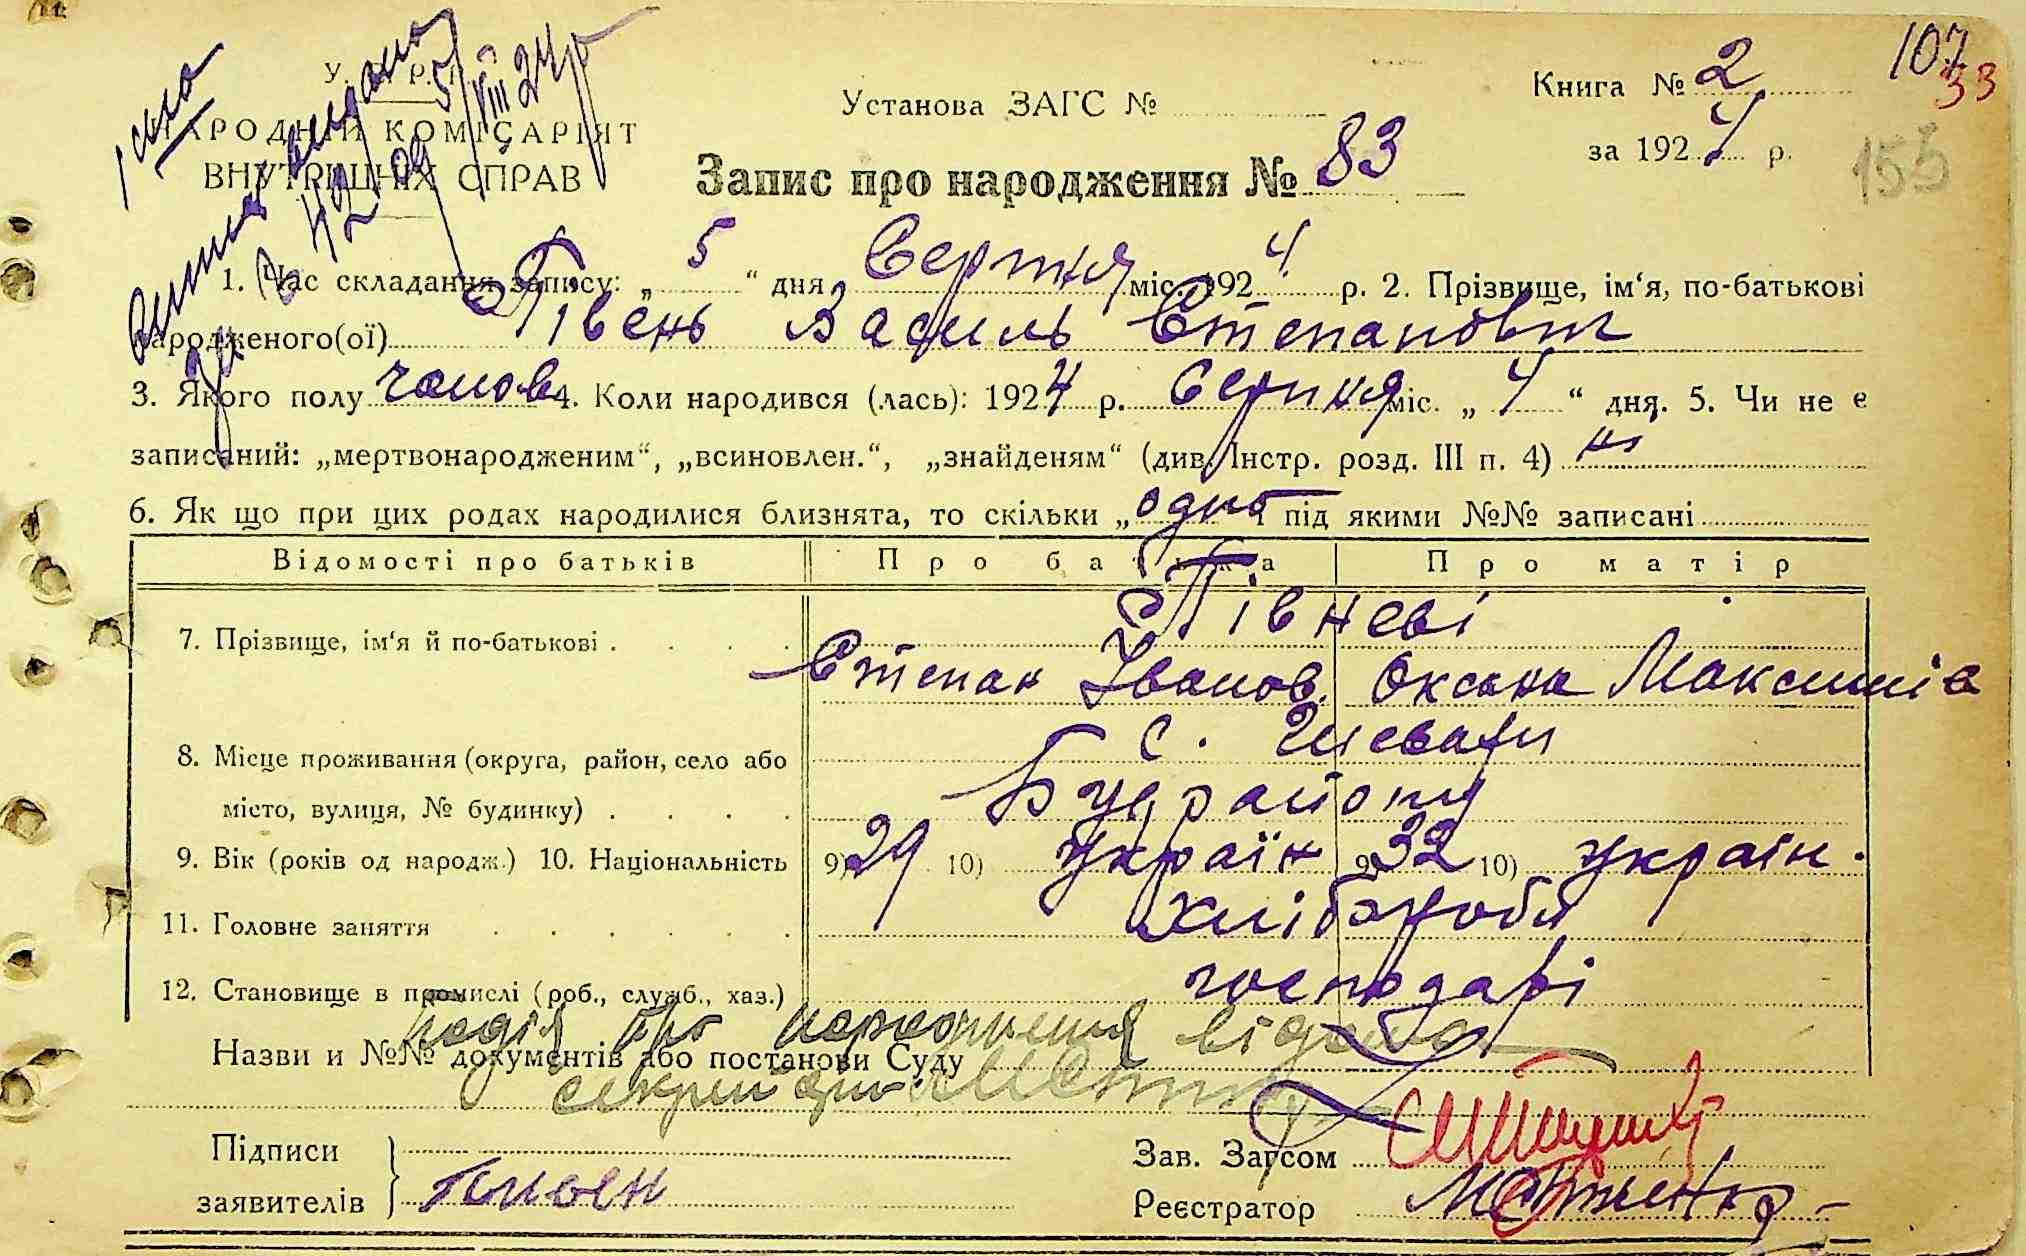 У. С. Р. Р.
НАРОДНІЙ КОМІСАРІЯТ
ВНУТРІШНІХ СПРАВ
Випис видано
за № 4209 5/VIII 24 р
Установа ЗАГС №
Книга № 2
за 1924 р.
107
33
155
Запис про народження № 83
1. Час складання запису: „ 5 “ дня Серпня міс. 1924 р. 2. Прізвище, ім‘я, по-батькові
народженого(ої) Півень Василь Степанович
3. Якого полу чолов 4. Коли народився (лась): 1924 р. Серпня міс. „ 4 “ дня. 5. Чи не є
записаний: „мертвонародженим“, „всиновлен.“, „знайденям“ (див. Інстр. розд. III п. 4) ні
6. Як що при цих родах народилися близнята, то скільки „ одно “ і під якими №№ записані
Відомості про батьків Про батька Про матір
Півневі
7. Прізвище, ім‘я й по-батькові
Степан Іванов. Оксана Максимів
8. Місце проживання (округа, район, село або
місто, вулиця, № будинку)
с.
району
9. Вік (років од народж.) 10. Національність 9) 29 10) україн 9) 32 10) україн.
11. Головне заняття хлібороби
12. Становище в промислі (роб., служб., хаз.) господарі
подія про народження відома
Назви и №№ документів або постанови Суду
Підписи
заявителів Пивен
Зав. Загсом
Реєстратор